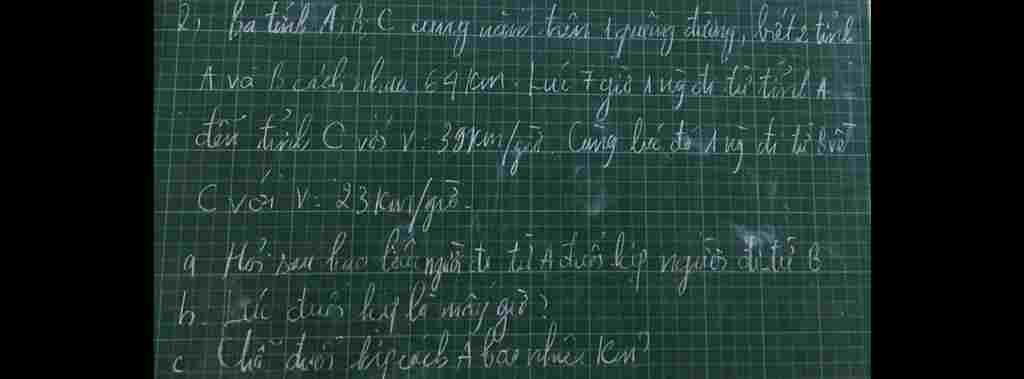 2, Ba tỉnh A, B, C cùng nằm trên 1 quãng đường, biết 2 tỉnh
A và B cách nhau 64 km. Lúc 7 giờ 1 ng đi từ tỉnh A
đến tỉnh C với V: 39km/giờ. Cùng lúc đó 1 ng đi từ B về
C với V: 23 km/giờ.
a Hỏi sau bao lâu người đi từ A đuổi kịp người đi từ B
b. Lúc đuổi kịp là mấy giờ?
c Chỗ đuổi kịp cách A bao nhiêu km?